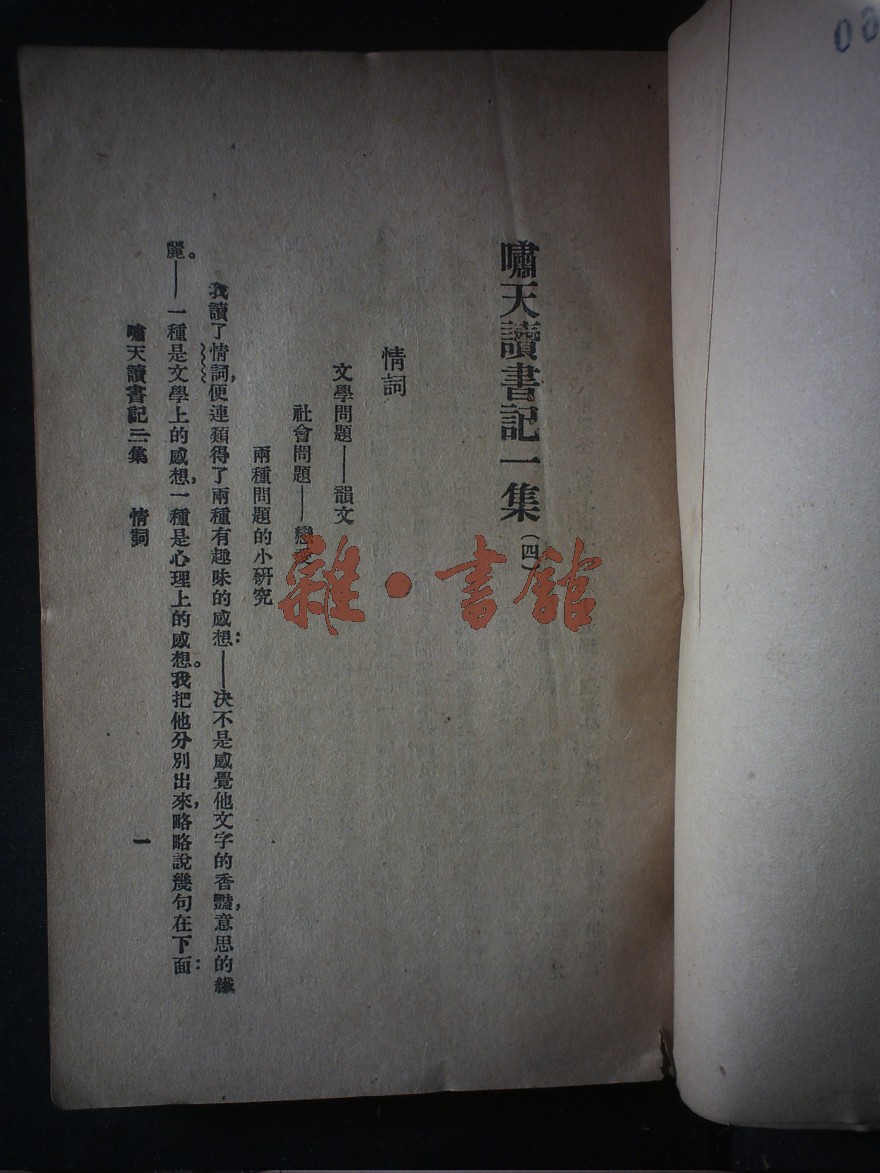 嘯天讀書記一集(四)
情詞
文學問題——韻文
社會問題——戀愛
兩種問題的小研究
我讀了情詞,便連類得了兩種有趣味的感想:——決不是感覺他文字的香豔,意思的纖
麗。——一種是文學上的感想,一種是心理上的感想。我把他分別出來,略略說幾句在下面:
嘯天讀書記三集 情詞 一
雜·書館